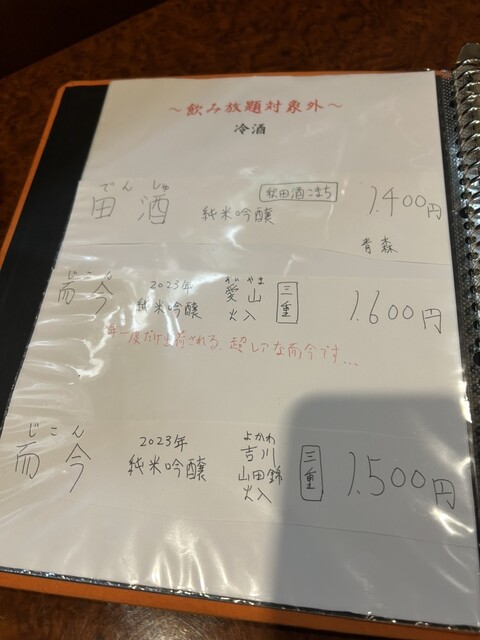 ～飲み放題対象外～
冷酒
でんしゅ
田酒 純米吟醸 秋田酒こまち 1.400円
青森
じこん
而今 2023年 純米吟醸 あいやま 愛山 火入 三重 1.600円
年一度だけ出荷される、超レアな而今です...
じこん
而今 2023年 純米吟醸 よかわ 吉川 山田錦 火入 三重 1.500円